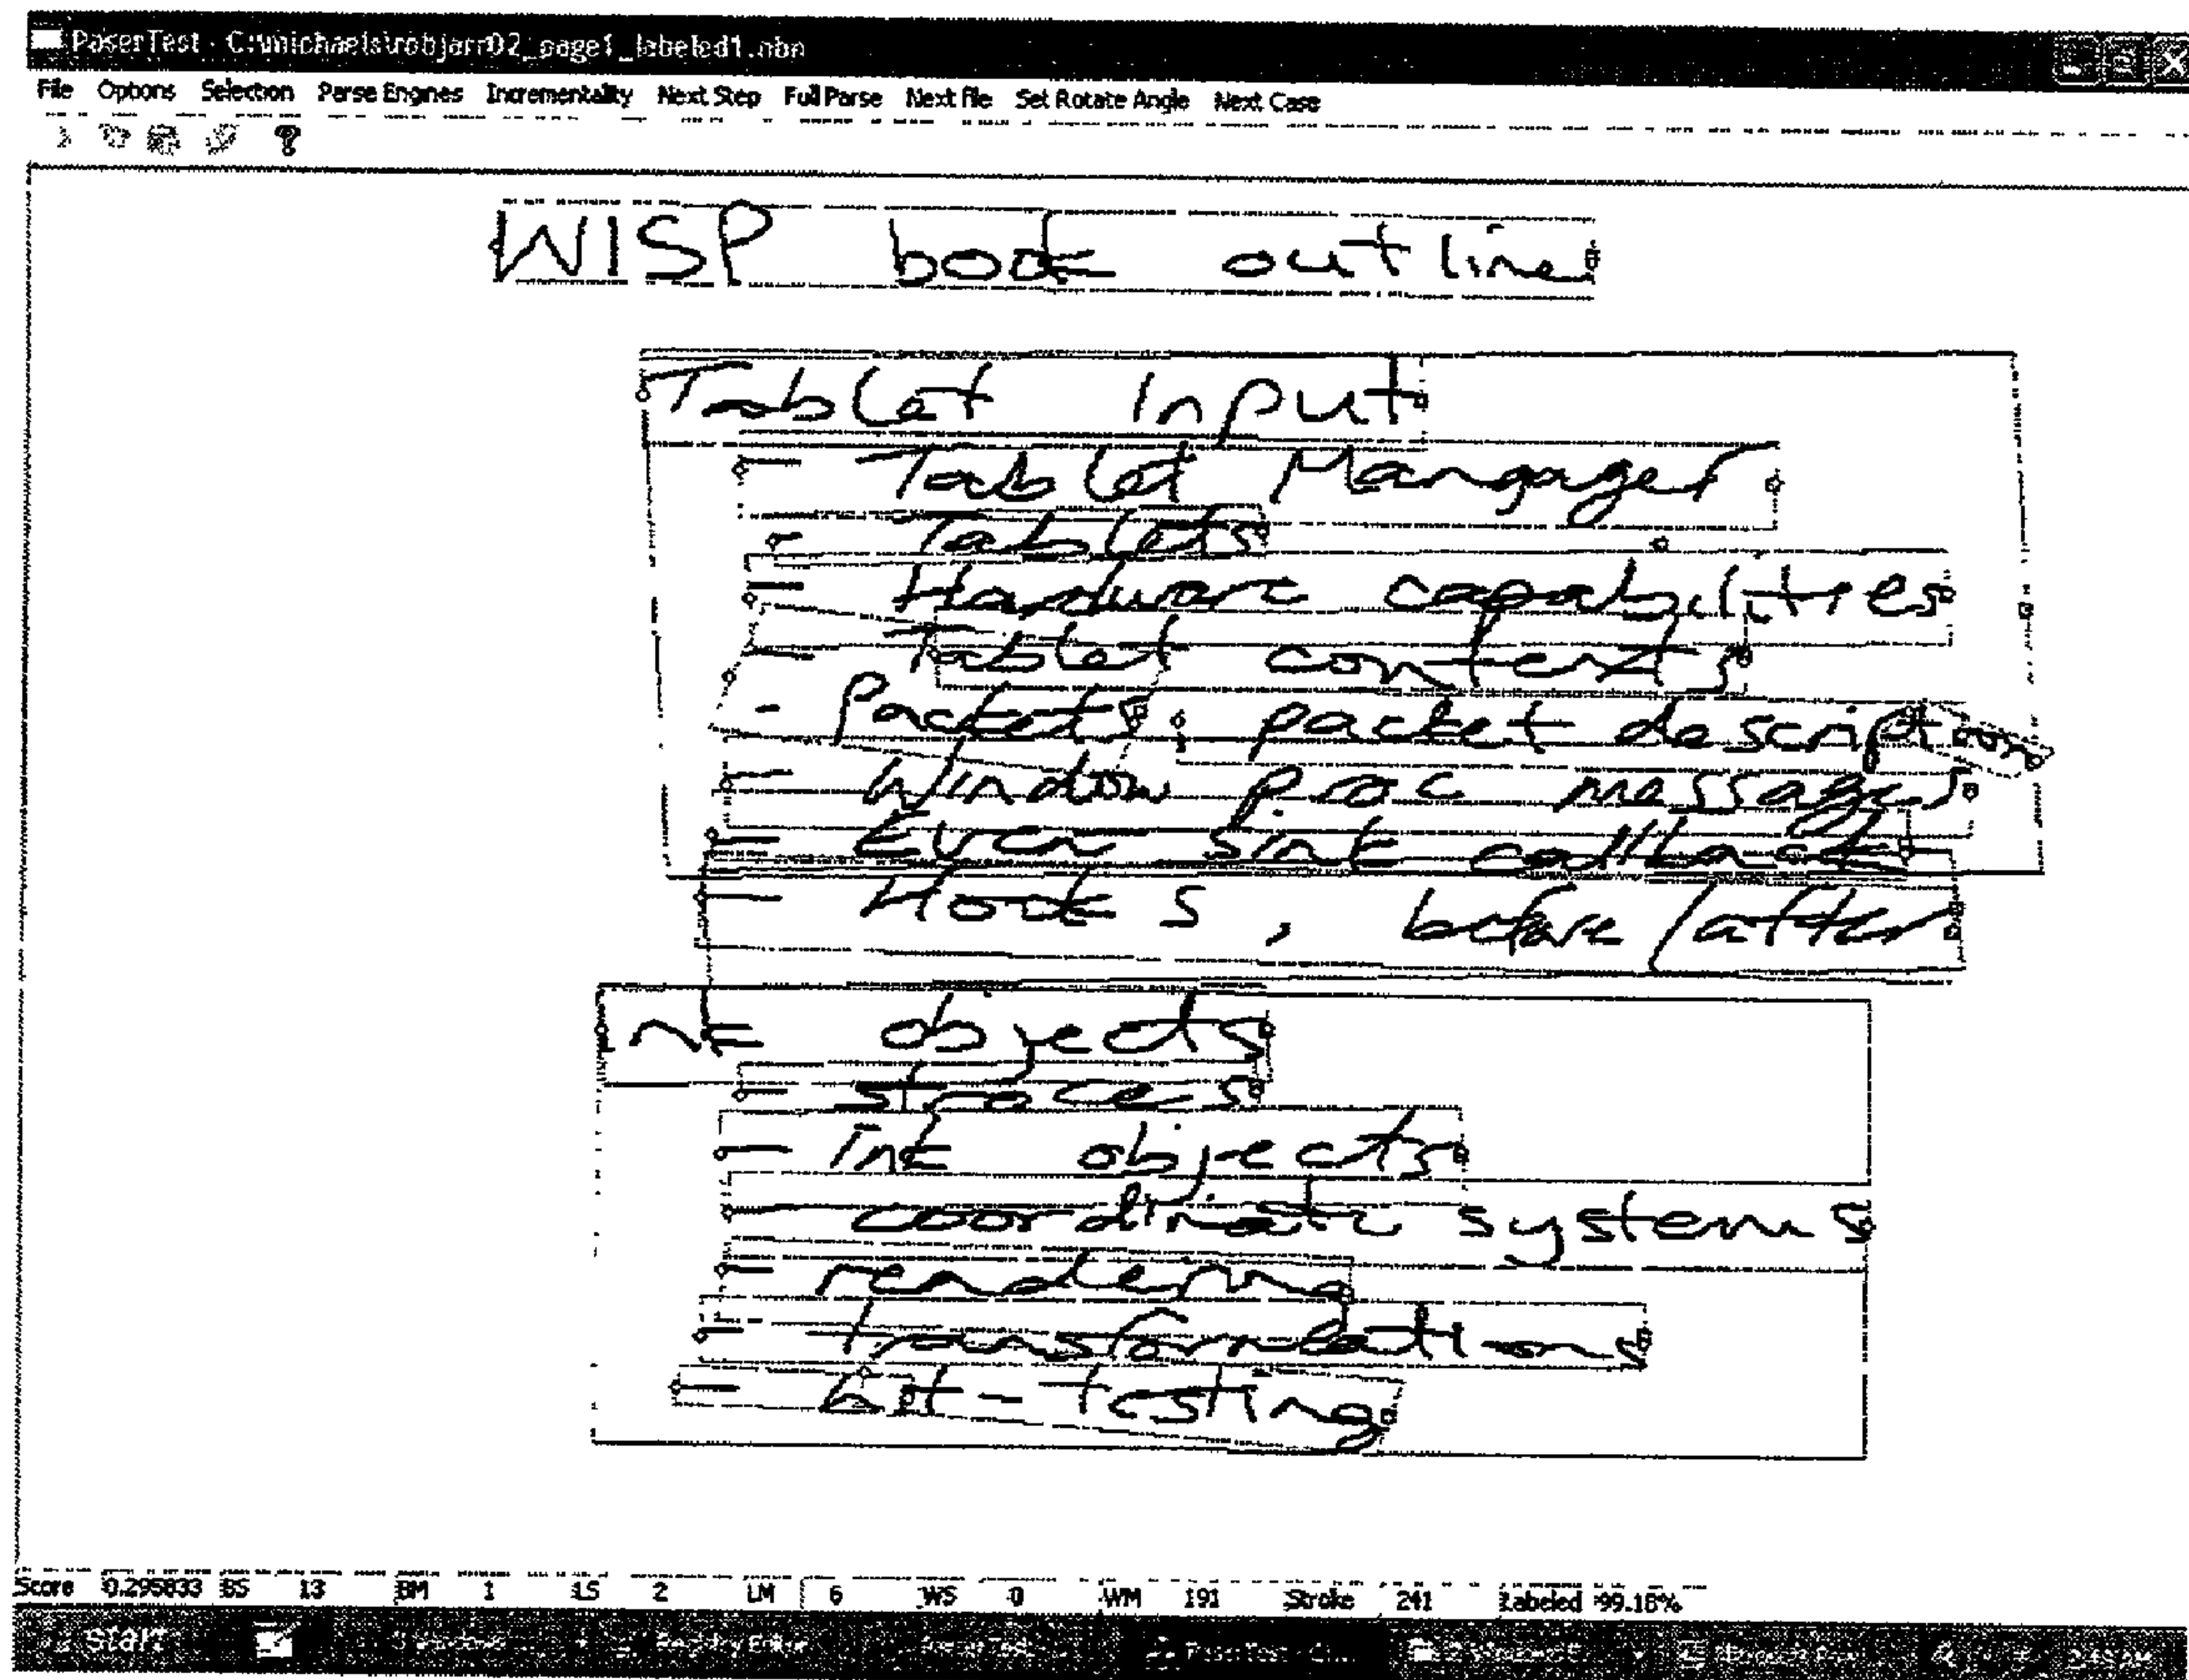 PaserTest - C:\michaels\robjarr02_page1_labeled1.nbn
File Options Selection Parse Engines Incrementality Next Step Full Parse Next file Set Rotate Angle Next Case
WISP book outline
Tablet Input
- Tablet Mangager
- Tablets
- Hardware capabilities
- Tablet contexts
- Packets, packet description
- Window proc messages
- Even sink callback
- Hooks, before/after
Ink objects
- stroces
- Ink objects
- coordinate systems
- rendering
- transformations
- hit-testing
Score 0.295833 BS 13 BM 1 LS 2 LM 6 WS 0 WM 191 Stroke 241 Labeled 99.18%
Start